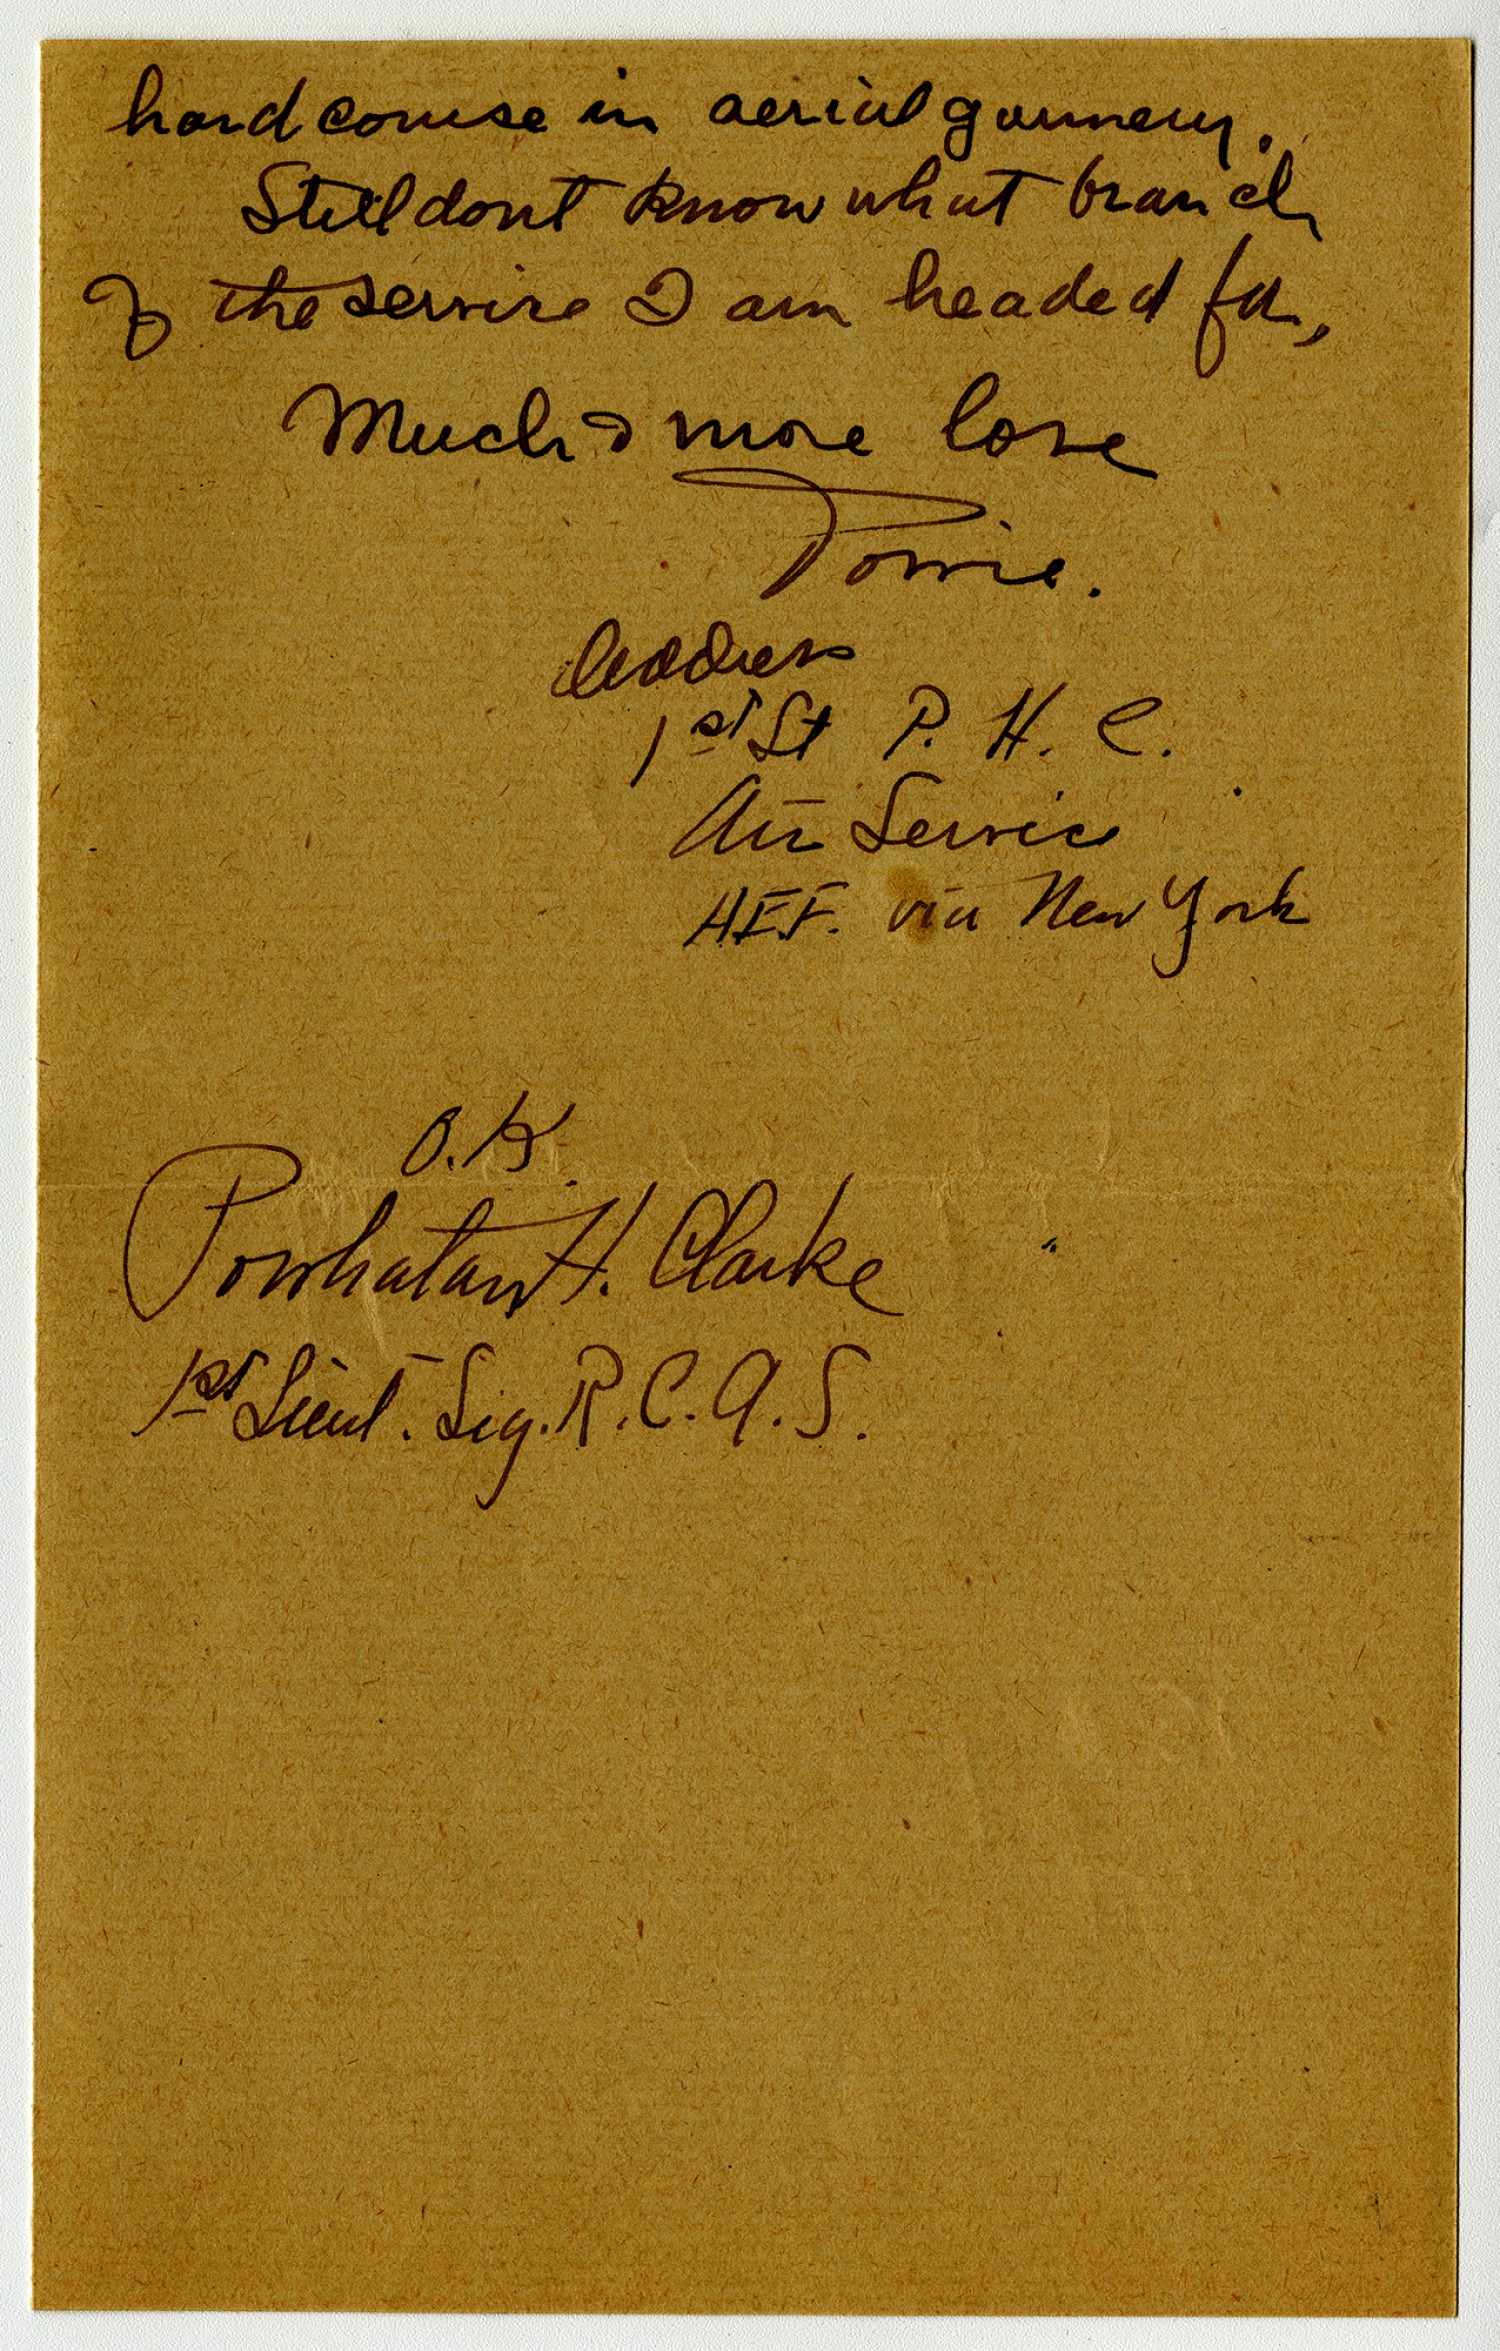 hard course in aerial gunnery.
Still dont know what branch
of the service I am headed for,
Much & more love
Powie.
Address
1st Lt P. H. C.
Air Service
A.E.F. via New York
O.K.
Powhatan H. Clarke
1st Lieut. Sig. R. C. A. S.